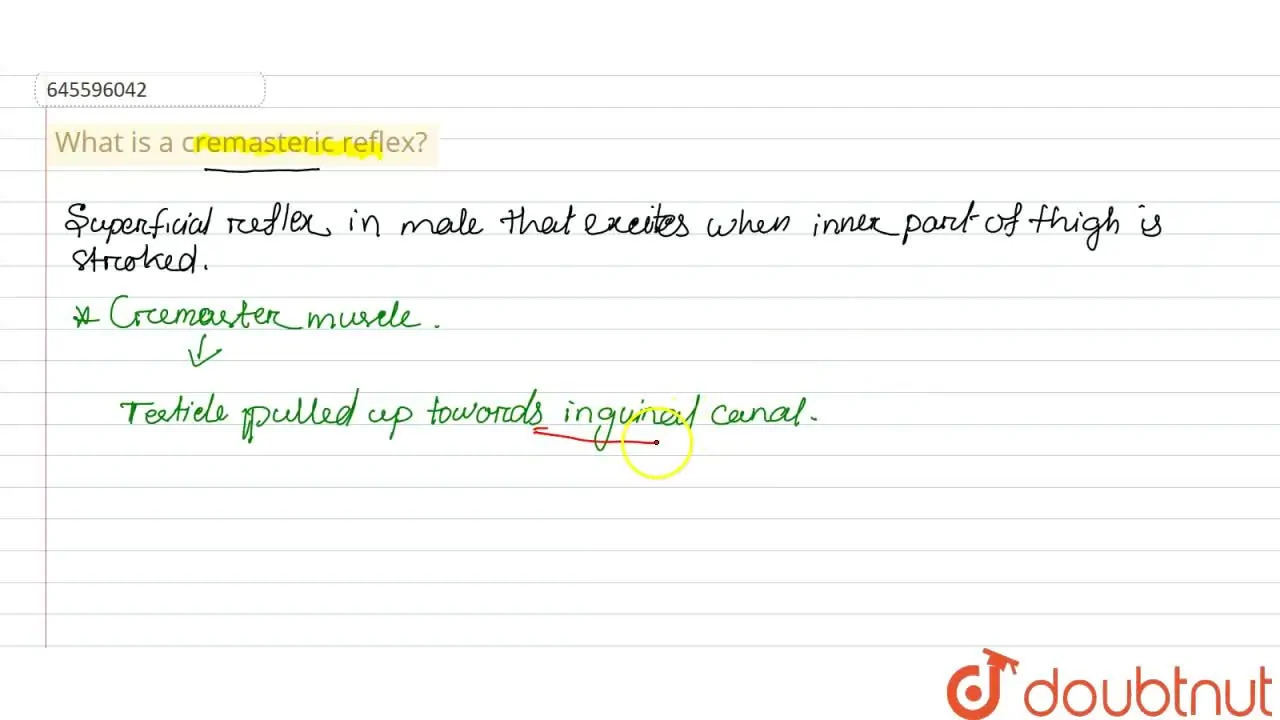 645596042
What is a cremasteric reflex?
Superficial reflex in male that excites when inner part of thigh is
stroked.
* Cremaster muscle.
↓
Testicle pulled up towards inguinal canal.
doubtnut